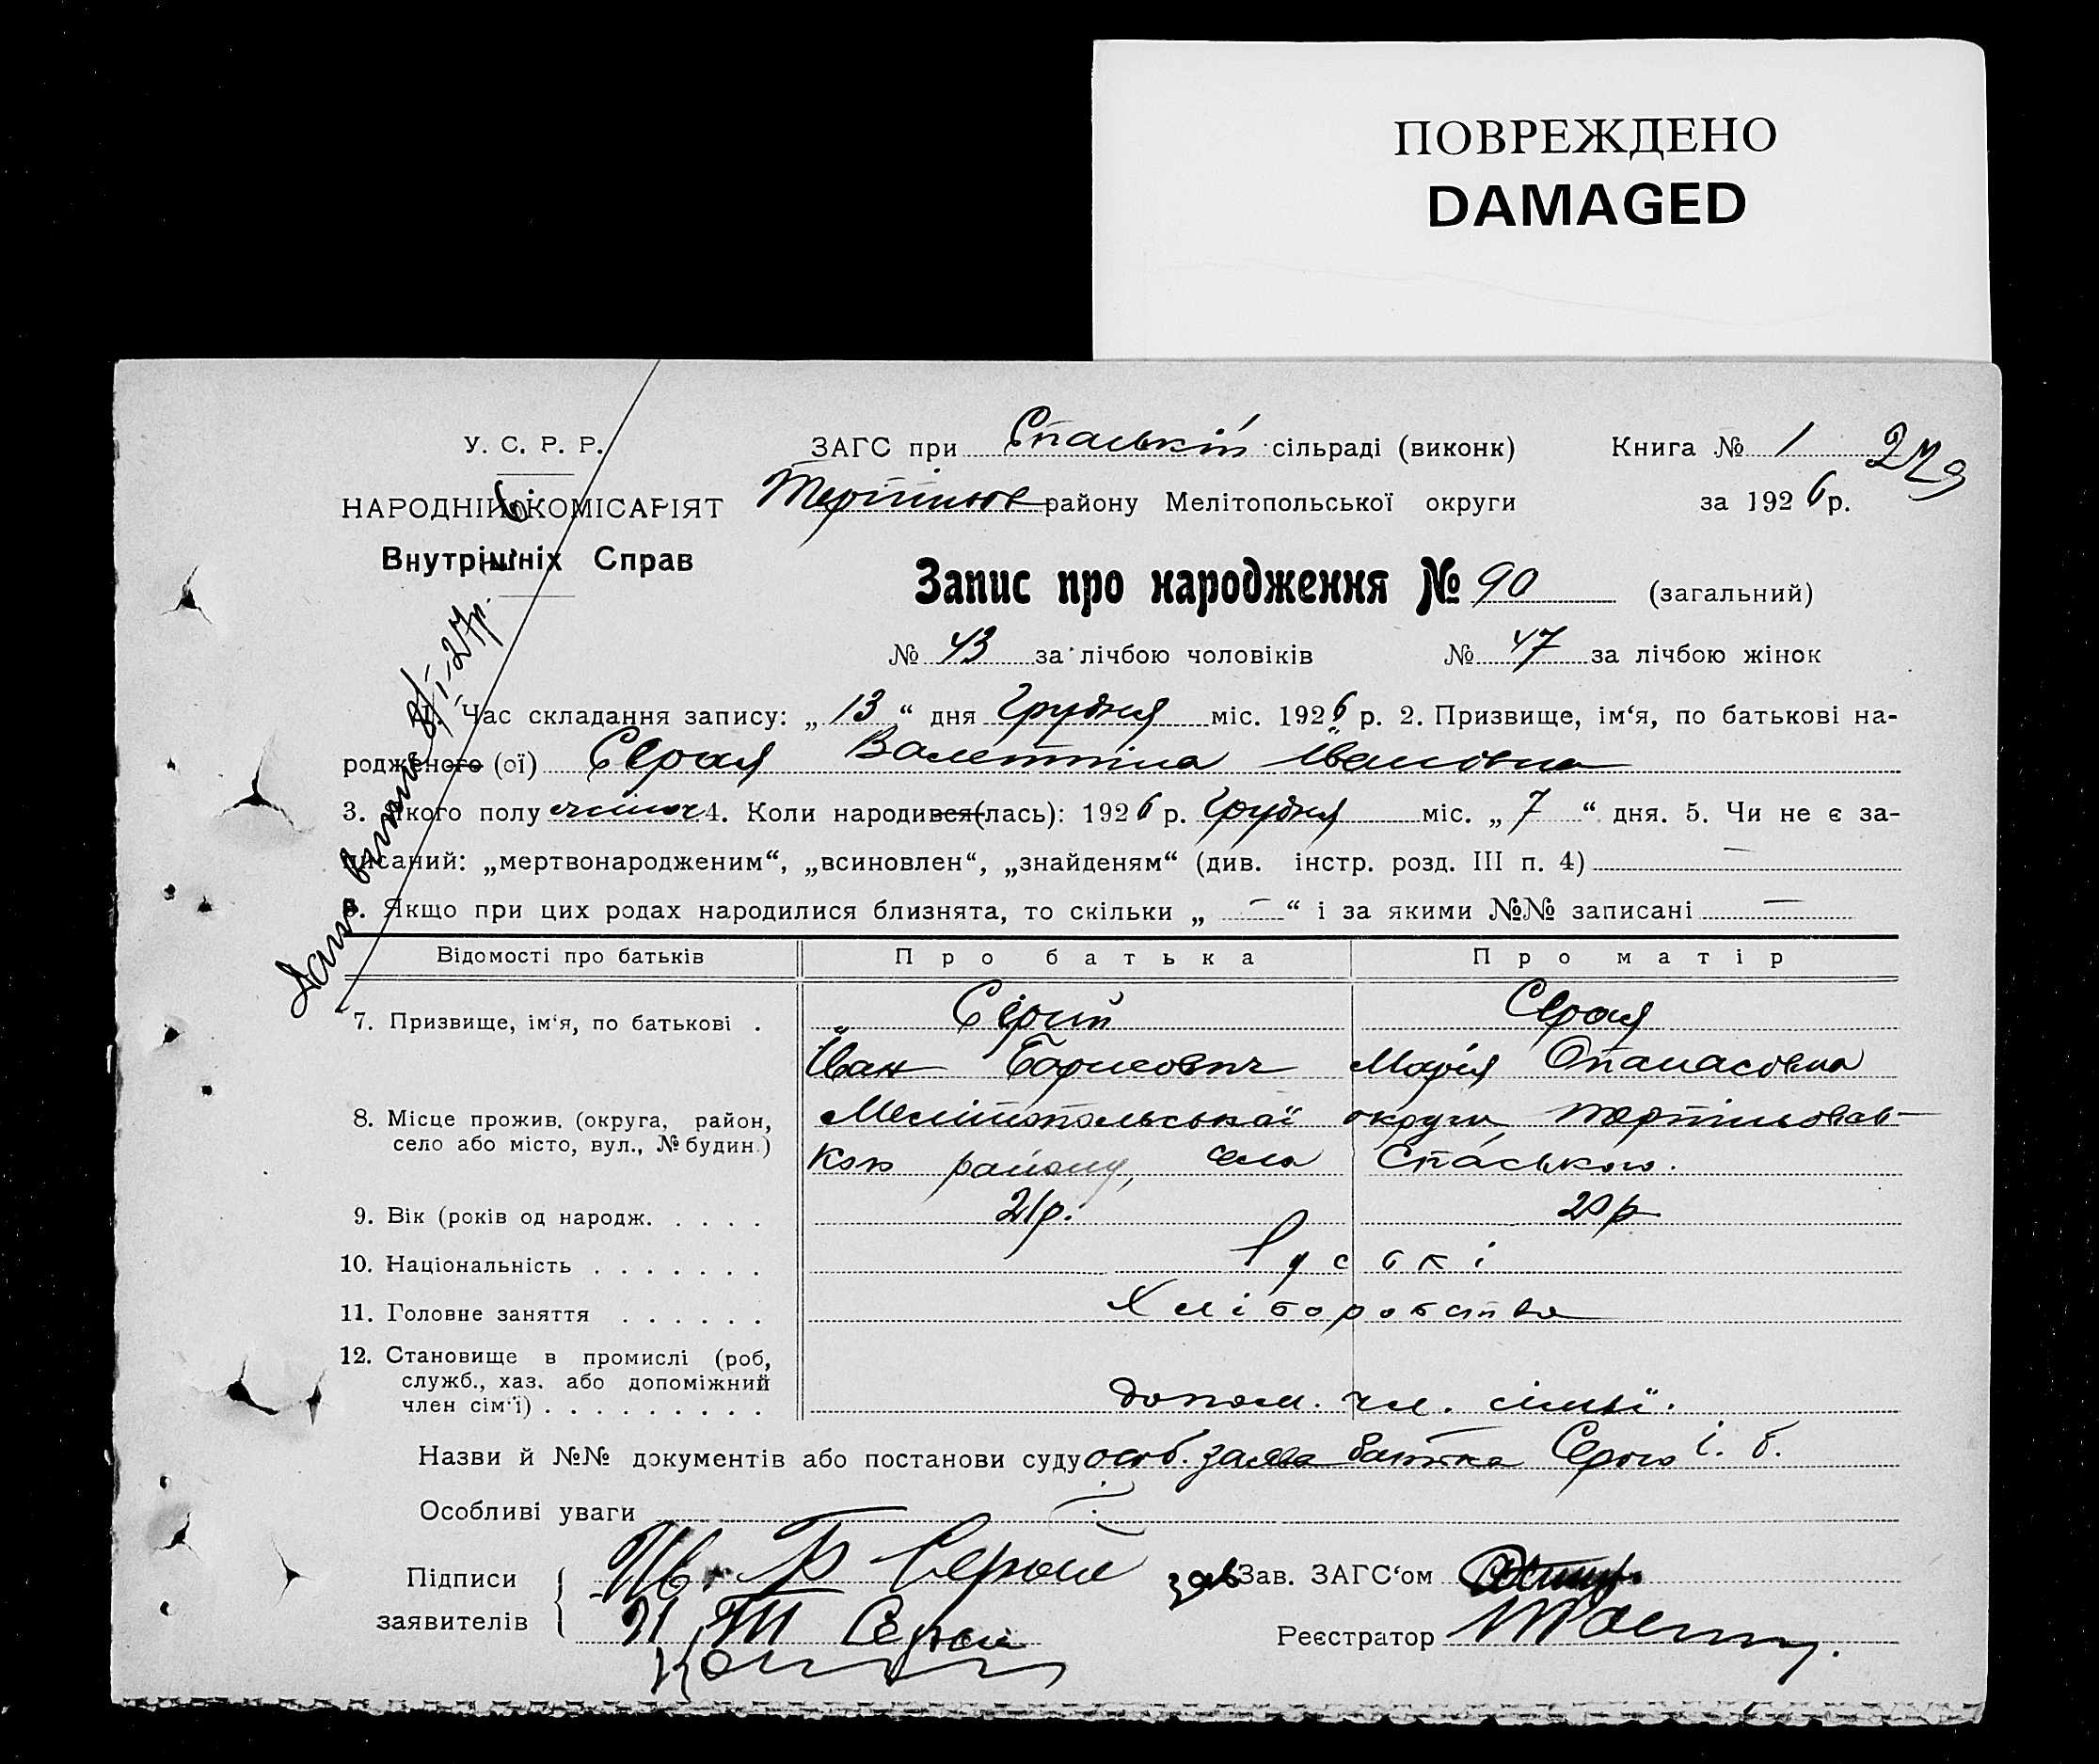 ПОВРЕЖДЕНО
DAMAGED
У. С. Р. Р.
НАРОДНІЙ КОМІСАРІЯТ
Внутрішніх Справ
ЗАГС при Спаській сільраді (виконк)
Терпіньов району Мелітопольської округи
Книга № 1 279
за 1926 р.
Запис про народження № 90 (загальний)
№ 43 за лічбою чоловіків № 47 за лічбою жінок
1. Час складання запису: „13“ дня Грудня міс. 1926 р. 2. Призвище, ім‘я, по батькові на-
родженого (ої) Серая Валентіна Івановна
3. Якого полу жіноч 4. Коли народився(лась): 1926 р. Грудня міс. „7“ дня. 5. Чи не є за-
писаний: „мертвонародженим“, „всиновлен“, „знайденям“ (див. інстр. розд. III п. 4) —
6. Якщо при цих родах народилися близнята, то скільки „—“ і за якими №№ записані —
Відомості про батьків Про батька Про матір
7. Призвище, ім‘я, по батькові . Сірий Серая
Іван Борисович Марія Опанасовна
8. Місце прожив. (округа, район, Мелітопольської округи, Терпіньовсь-
село або місто, вул., № будин.) кого району, села Спаського.
9. Вік (років од народж. . . . . 21 р. 20 р.
10. Національність . . . . . . . Руські
11. Головне заняття . . . . . . Хліборобства
12. Становище в промислі (роб,
служб., хаз. або допоміжний
член сім‘ї) . . . . . . . . . допом. чл. сімьї.
Назви й №№ документів або постанови суду особ. заява батька Серого І. Б.
Особливі уваги
Підписи
заявителів
Ив. Б Серый
Серый
зав Зав. ЗАГС‘ом
Реєстратор
Дана виписка 8/I-27р.